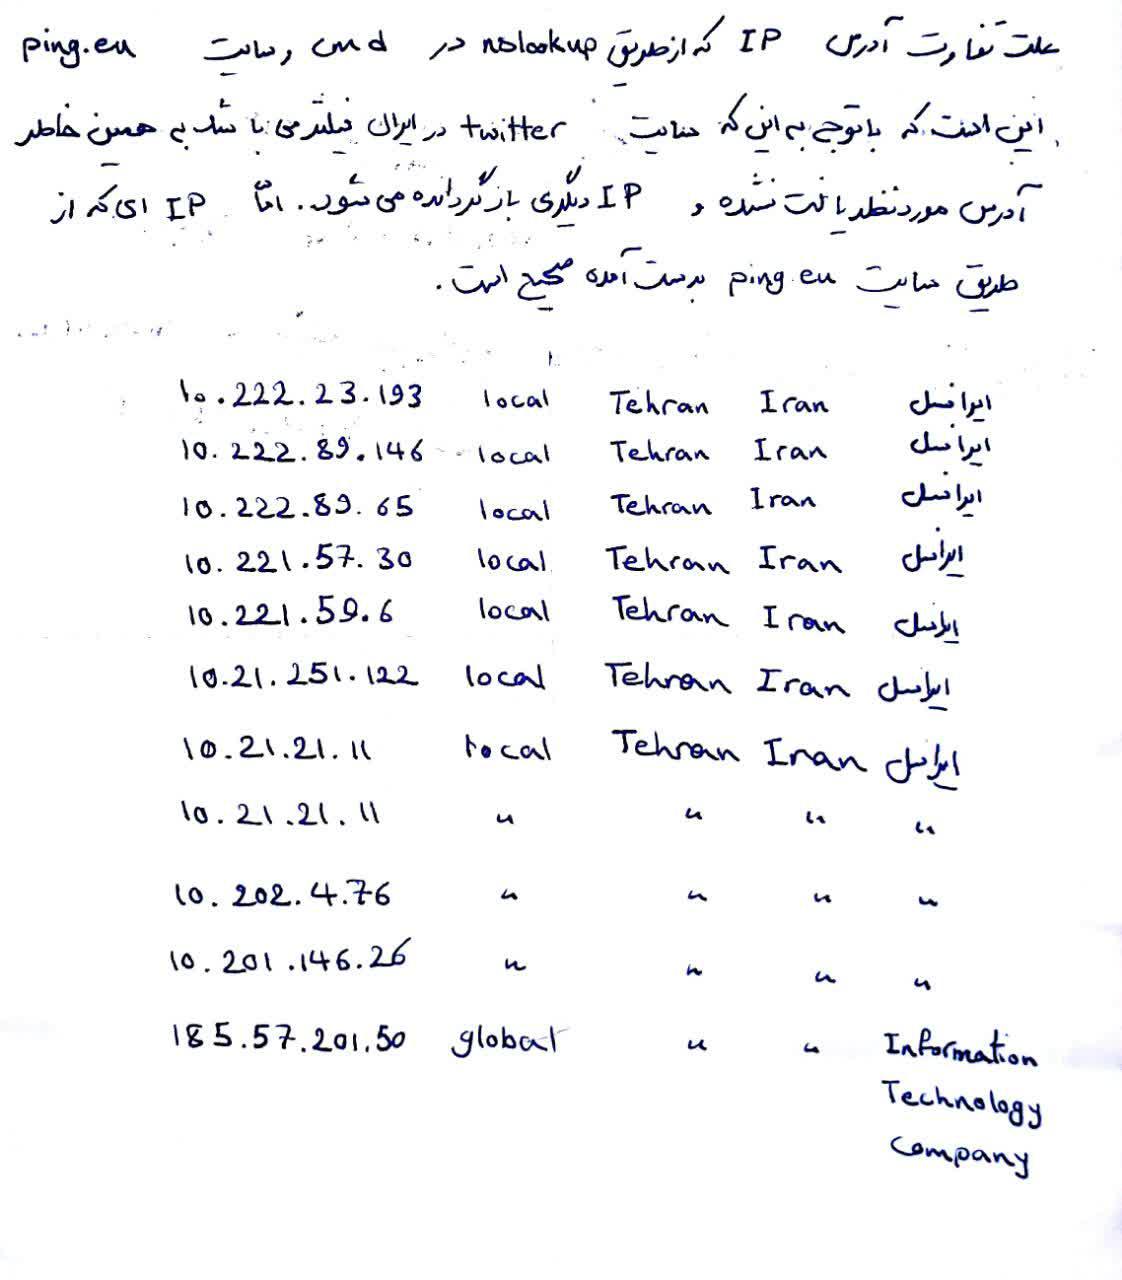 علت تفاوت آدرس IP که از طریق nslookup در cmd و سایت ping.eu
این است که با توجه به این که سایت twitter در ایران فیلتر می باشد به همین خاطر
آدرس مورد نظر یافت نشده و IP دیگری بازگردانده می شود. امّا IP ای که از
طریق سایت ping.eu بدست آمده صحیح است.
10.222.23.193 local Tehran Iran ایرانسل
10.222.89.146 local Tehran Iran ایرانسل
10.222.89.65 local Tehran Iran ایرانسل
10.221.57.30 local Tehran Iran ایرانسل
10.221.59.6 local Tehran Iran ایرانسل
10.21.251.122 local Tehran Iran ایرانسل
10.21.21.11 local Tehran Iran ایرانسل
10.21.21.11 " " " "
10.202.4.76 " " " "
10.201.146.26 " " " "
185.57.201.50 global " " Information
Technology
Company